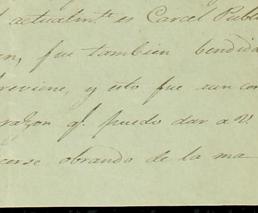 actualm.te es Carcel Publi
en, fue tambien bendida
previene, y esto fue un con
razon q.e puedo dar a V.
cerse obrando de la ma